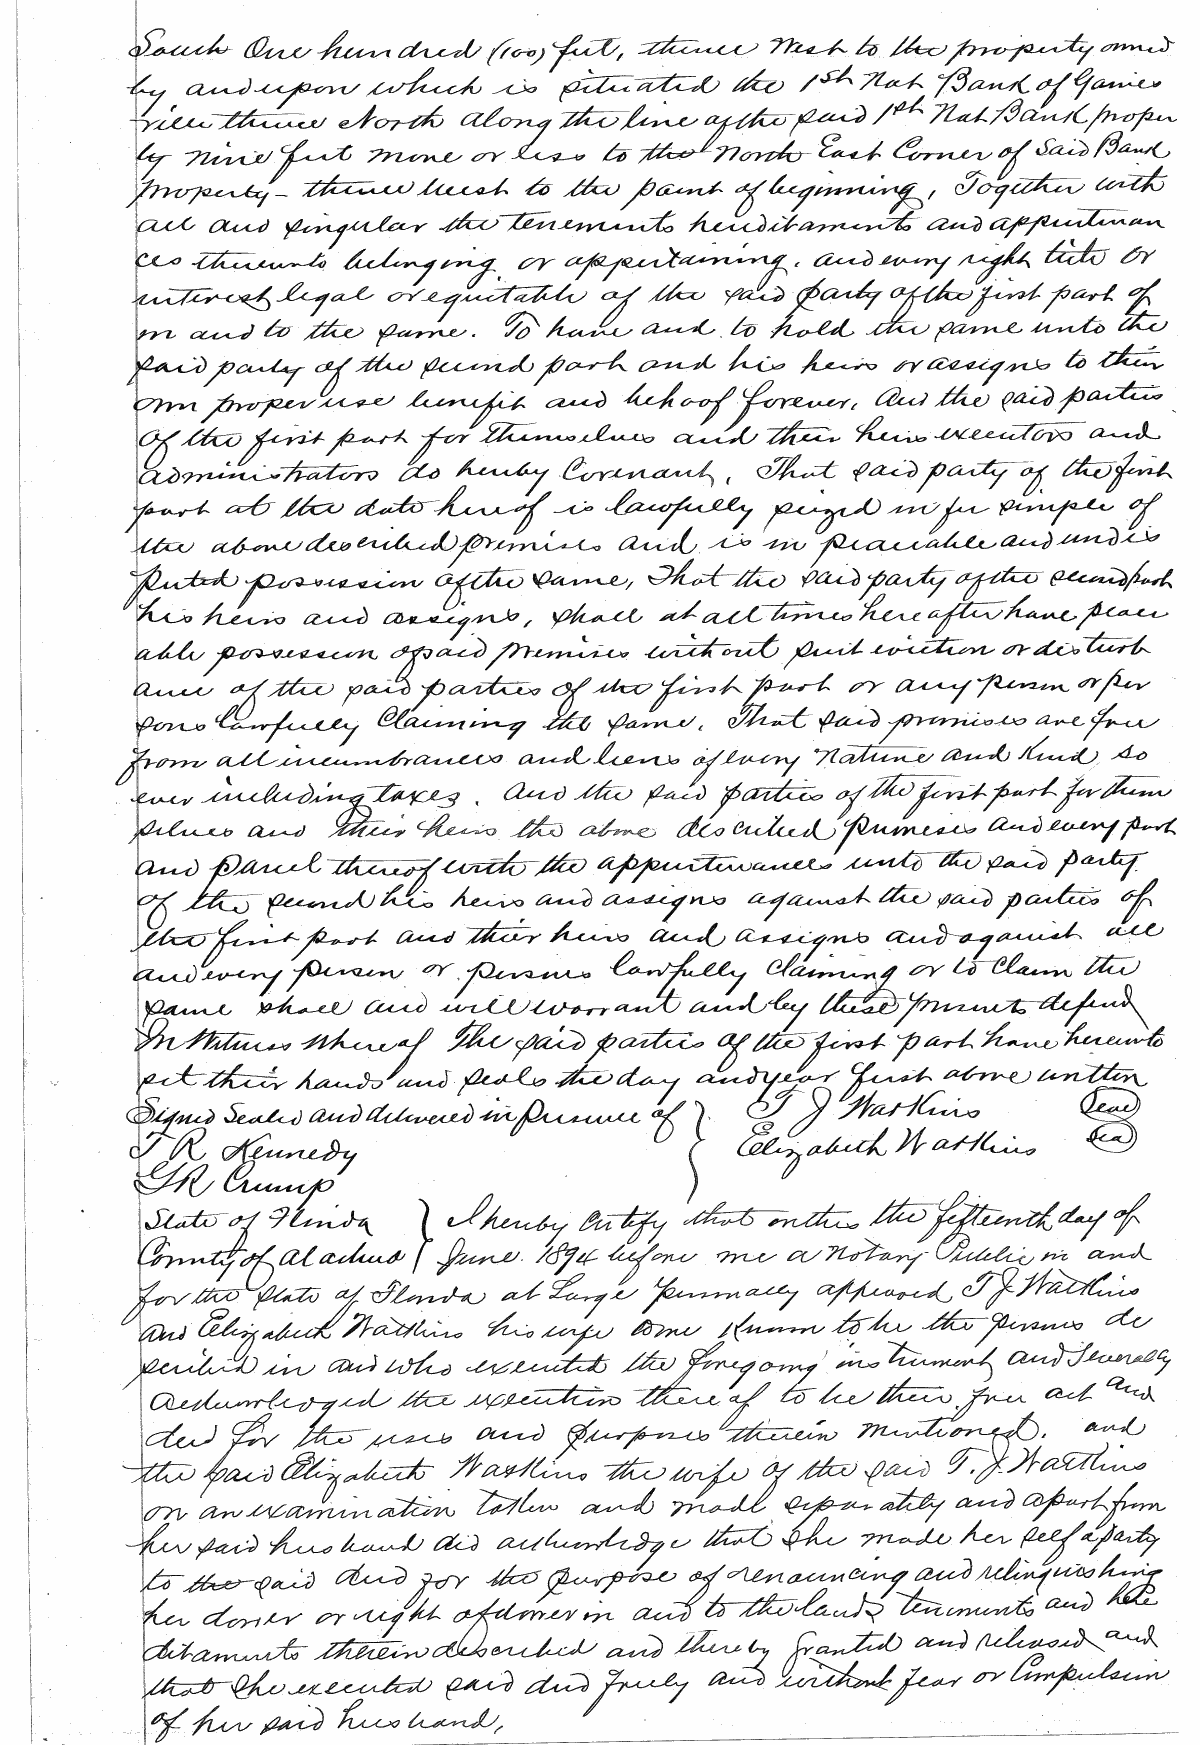 South One hundred (100) feet, thence West to the property owned
by and upon which is situated the 1st Nat Bank of Gaines
ville thence North along the line of the said 1st Nat Bank proper
ty nine feet more or less to the North East Corner of Said Bank
property - thence West to the point of beginning, Together with
all and singular the tenements hereditaments and appurtenan
ces thereunto belonging or appertaining, and every right title or
interest legal or equitable of the said party of the first part of
in and to the same. To have and to hold the same unto the
said party of the second part and his heirs or assigns to their
own proper use benefit and behoof forever, And the said parties
of the first part for themselves and their heirs executors and
administrators do hereby Covenant, That said party of the first
part at the date hereof is lawfully seized in fee simple of
the above described premises and is in peaceable and undis
puted possession of the same, That the said party of the second part
his heirs and assigns, shall at all times hereafter have peace
able possession of said premises without suit eviction or disturb
ance of the said parties of the first part or any person or per
sons lawfully Claiming the same. That said premises are free
from all incumbrances and liens of every Nature and Kind so
ever including taxes. And the said parties of the first part for them
selves and their heirs the above described premises and every part
and parcel thereof with the appurtenances unto the said party
of the second his heirs and assigns against the said parties of
the first part and their heirs and assigns and against all
and every person or persons lawfully claiming or to claim the
same shall and will warrant and by these presents defend
In Witness Whereof The said parties of the first part have hereunto
set their hands and seals the day and year first above written
Signed Sealed and delivered in presence of } T J Watkins (Seal)
T R Kennedy Elizabeth Watkins (Seal)
G K Crump
State of Florida } I hereby certify that on this the fifteenth day of
County of Alachua } June 1894 before me a Notary Public in and
for the State of Florida at Large personally appeared T J Watkins
and Elizabeth Watkins his wife to me known to be the persons de
scribed in and who executed the foregoing instrument and severally
acknowledged the execution thereof to be their free act and
deed for the uses and purposes therein mentioned. and
the said Elizabeth Watkins the wife of the said T. J. Watkins
on an examination taken and made separately and apart from
her said husband did acknowledge that she made her self a party
to the said deed for the purpose of renouncing and relinquishing
her dower or right of dower in and to the lands tenements and here
ditaments therein described and thereby granted and released and
that She executed said deed freely and without fear or Compulsion
of her said husband,